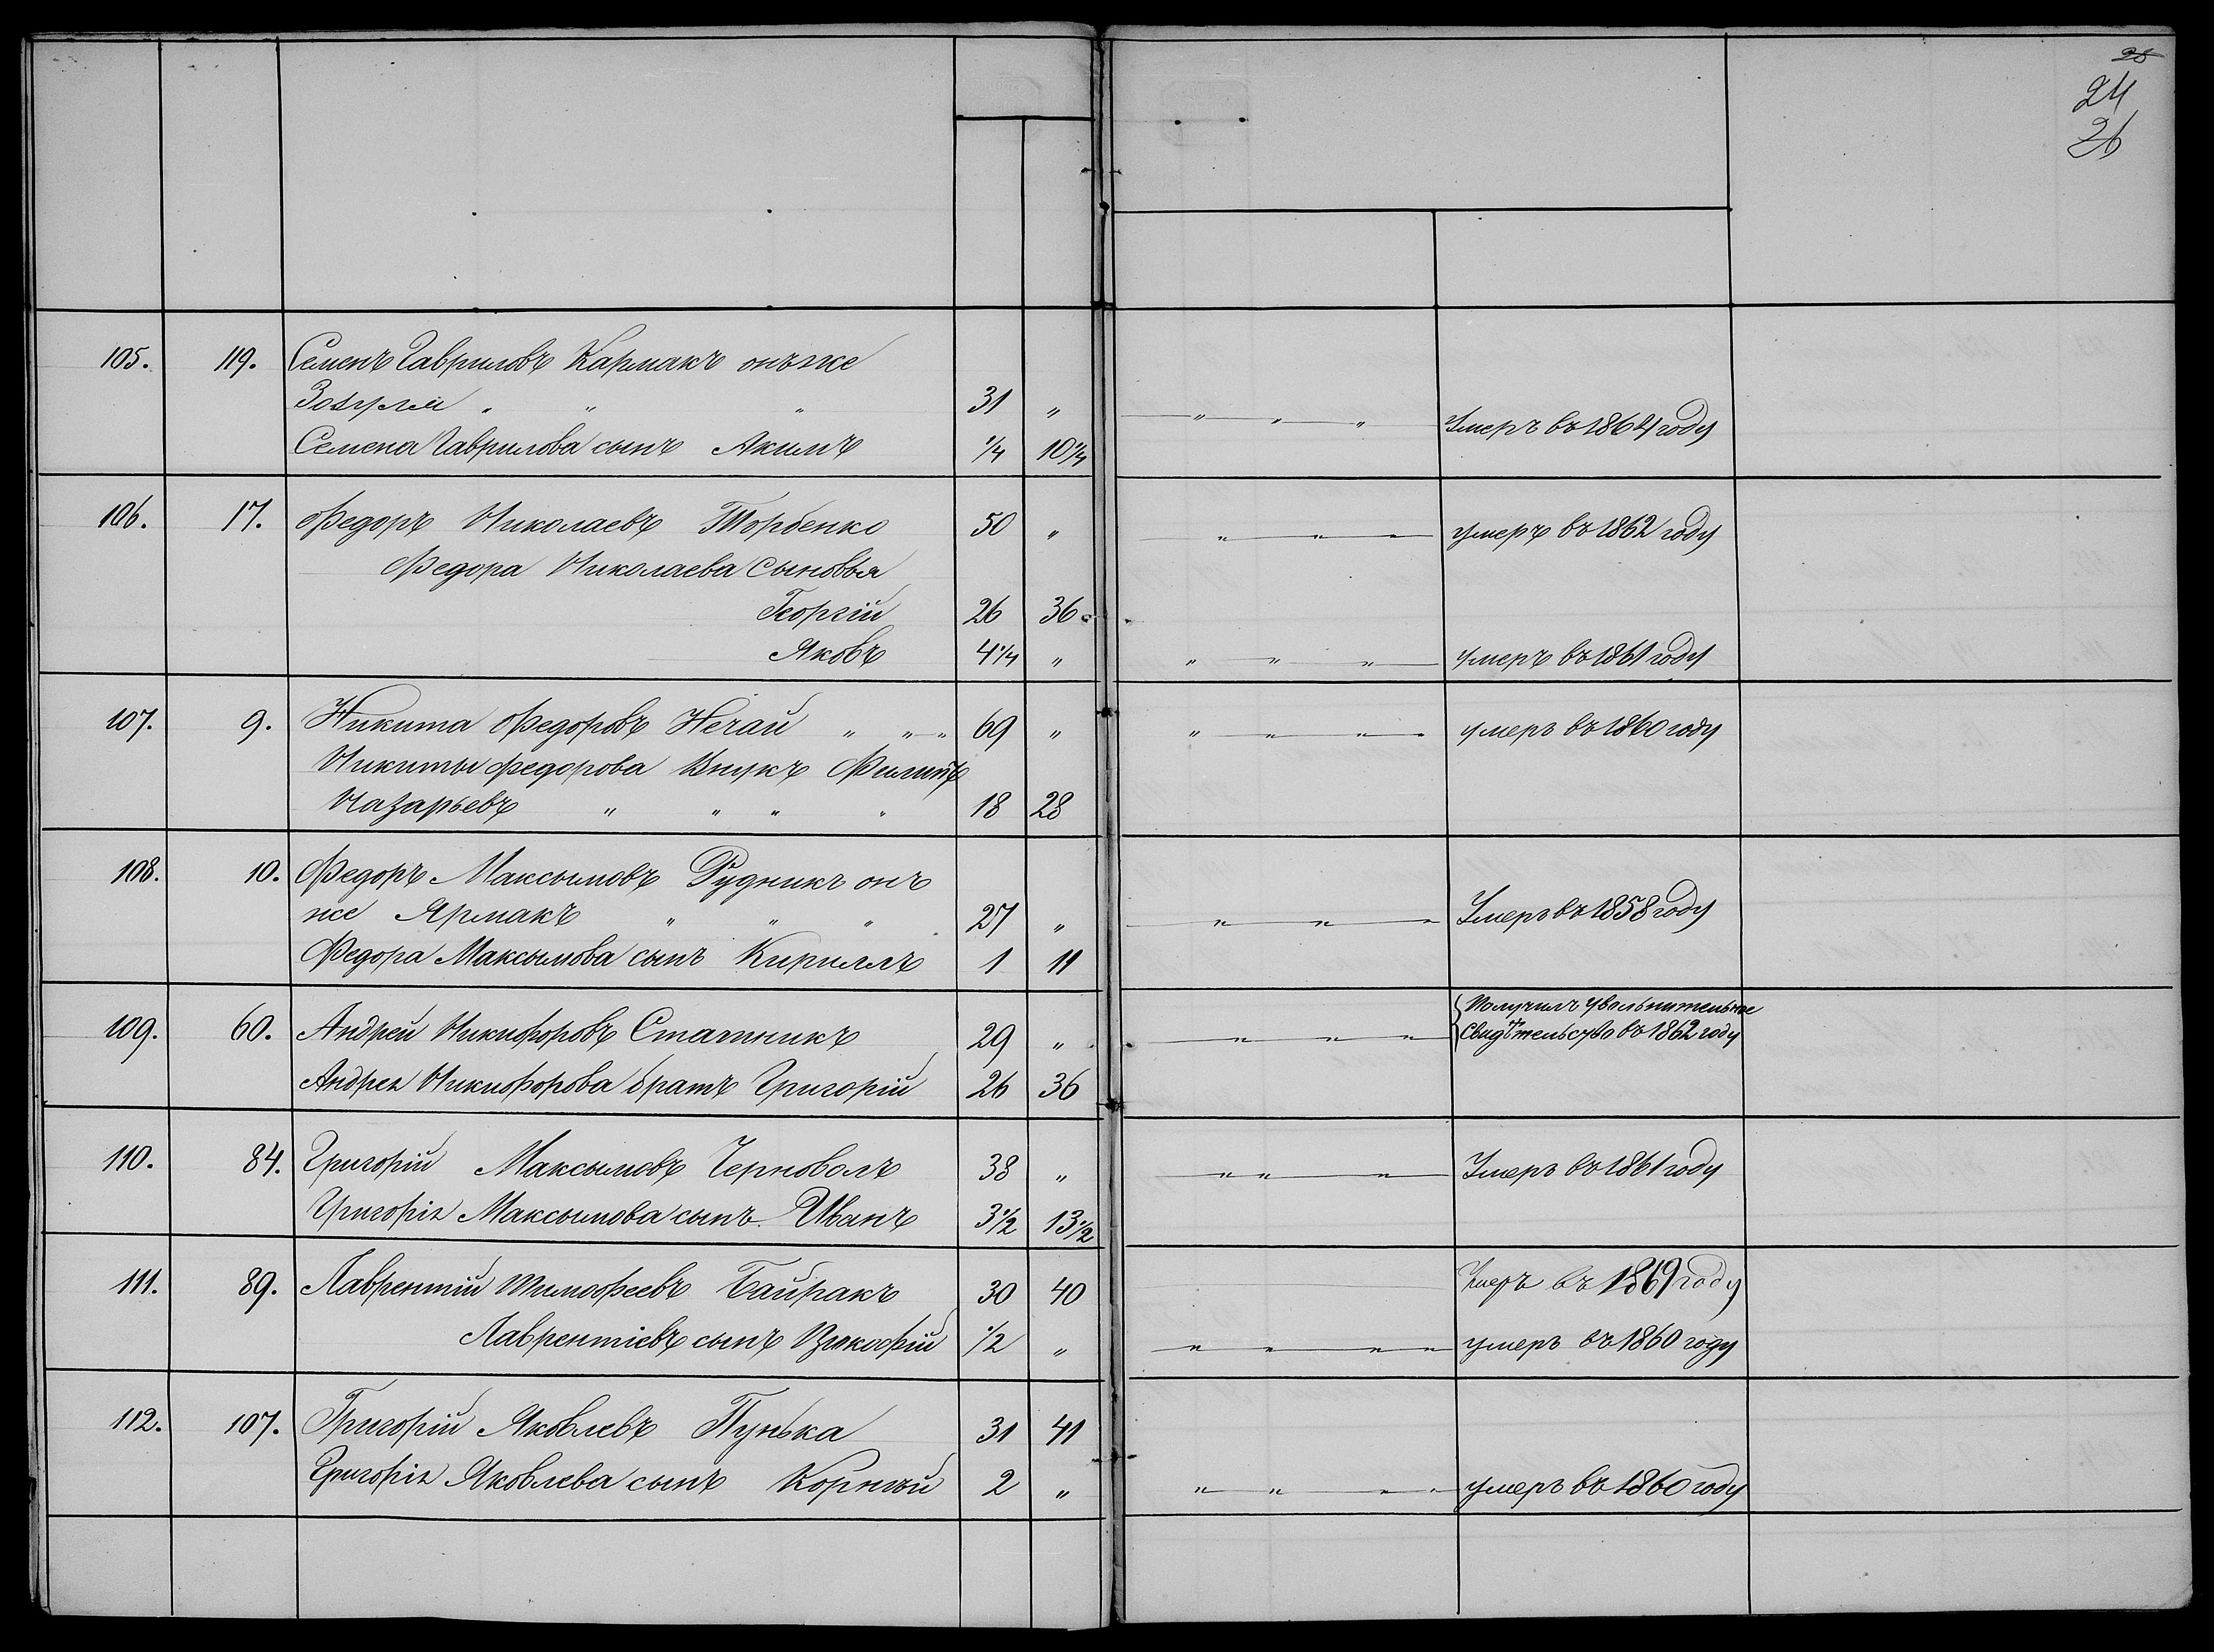 25
24
26
105. 119. Семенъ Гавриловъ Кармакъ онъже
31 „ „ „ „ Умеръ въ 1864 году
Семена Гаврилова сынъ Акимъ 1/4 10 1/4
106. 17. Федоръ Николаевъ Торбенко 50 „ „ „ „ умеръ въ 1862 году
Федора Николаева Сыновья
Георгій 26 36
Яковъ 4 1/4 „ „ „ „ умеръ въ 1861 году
107. 9. Никита Федоровъ Нечай „ „ „ 69 „ „ „ „ „ умеръ въ 1860 году
Никиты Федорова Внукъ Филипъ
Назарьевъ „ „ „ „ 18 28
108. 10. Федоръ Максымовъ Рудникъ онъ
же Ярмакъ „ „ „ 27 „ „ „ „ Умеръ въ 1858 году
Федора Максымова сынъ Кириллъ 1 11
109. 60. Андрей Никифоровъ Статникъ 29 „ „ „ „ Получилъ увольнительное
свидѣтельство въ 1862 году
Андрея Никифорова братъ Григорій 26 36
110. 84. Григорій Максымовъ Черноволъ 38 „ „ „ „ Умеръ въ 1861 году
Григорія Максымова сынъ Иванъ 3 1/2 13 1/2
111. 89. Лаврентій Тимофеевъ Байракъ 30 40 Умеръ въ 1869 году
Лаврентіевъ сынъ Прокофій 1/2 „ „ „ „ „ умеръ въ 1860 году
112. 107. Григорій Яковлевъ Пунька 31 41
Григорія Яковлева сынъ Корнѣй 2 „ „ „ „ „ умеръ въ 1860 году